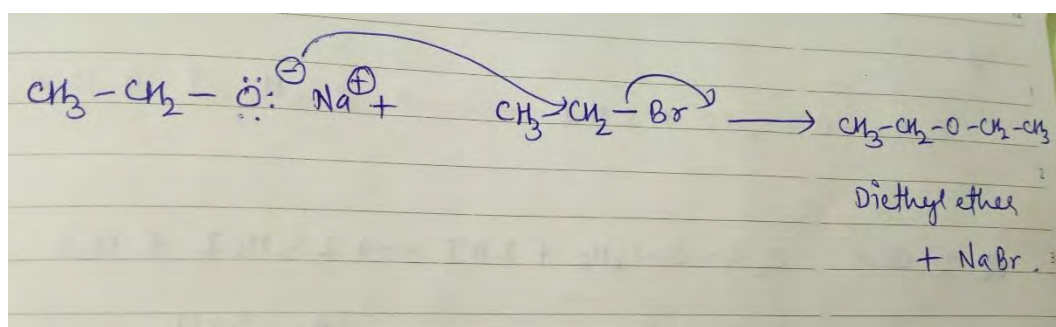 CH₃-CH₂-Ö:⊖ Na⊕ + CH₃-CH₂-Br ⟶ CH₃-CH₂-O-CH₂-CH₃
Diethyl ether
+ NaBr.